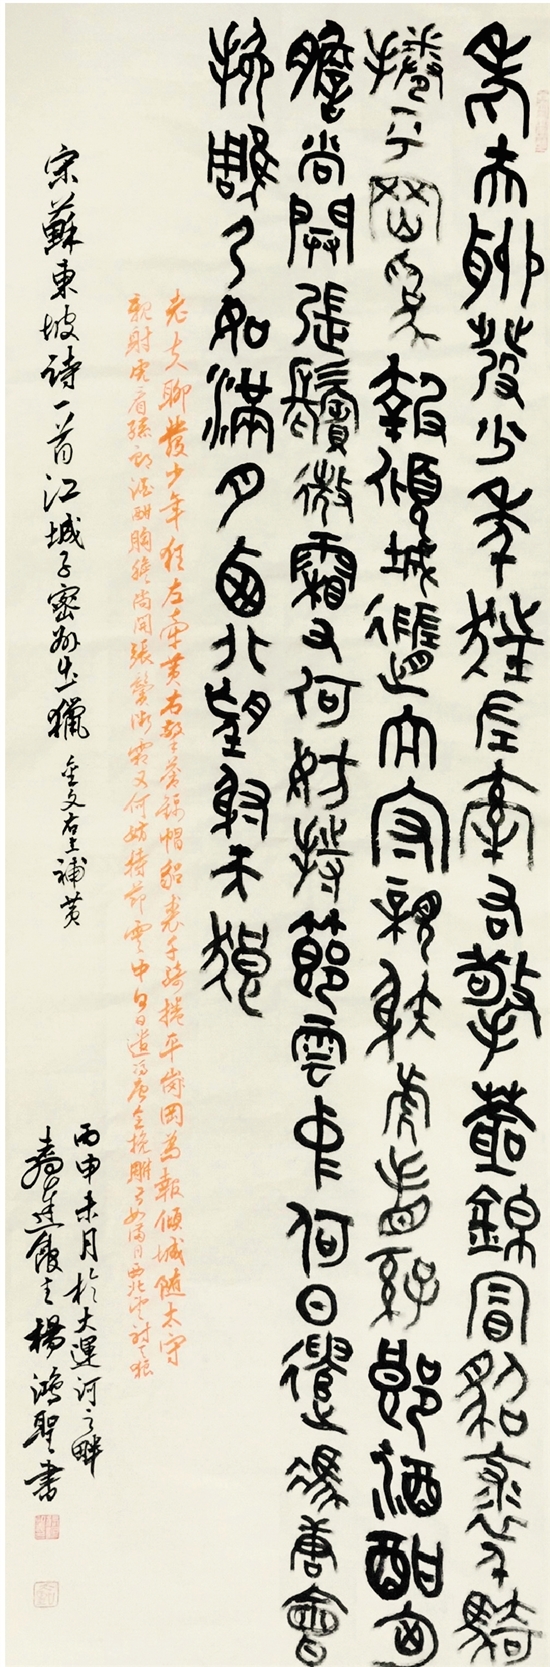 老夫聊發少年狂左牽右擎蒼錦冒貂裘千騎
捲平岡為報傾城隨太守親射虎看孫郎酒酣胸
膽尚開張鬢微霜又何妨持節雲中何日遣馮唐會
挽雕弓如滿月西北望射天狼
老夫聊發少年狂左牽黃右擎蒼錦帽貂裘千騎捲平崗岡為報傾城隨太守
親射虎看孫郎酒酣胸膽尚開張鬢微霜又何妨持節雲中何日遣馮唐會挽雕弓如滿月西北望射天狼
宋蘇東坡詩一首江城子密州出獵 金文補黃
丙申未月於大運河之畔
楊鴻聖書